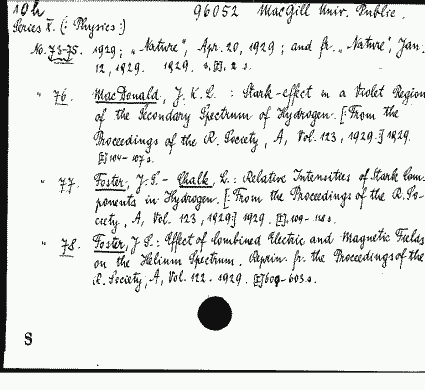 10h 96052 MacGill Univ. Public.
Series X. (: Physics :)
No. 73-75. 1929; „Nature", Apr. 20, 1929; and fr. „Nature", Jan.
12, 1929. 1929. 3, [1], 2 s.
" 76. MacDonald, J. K. L. : Stark-effect in a Violet Region
of the Secondary Spectrum of Hydrogen. [: From the
Proceedings of the R. Society, A, Vol. 123, 1929.:] 1929.
[1] 104-107 s.
" 77. Foster, J. S. - Chalk, L. : Relative Intensities of Stark Com-
ponents in Hydrogen. [: From the Proceedings of the R. So-
ciety, A, Vol. 123, 1929:] 1929. [1], 109-118 s.
" 78. Foster, J. S. : Effect of Combined Electric and Magnetic Fields
on the Helium Spectrum. Reprin. fr. the Proceedings of the
R. Society, A, Vol. 122. 1929. [1] 600-603 s.
S